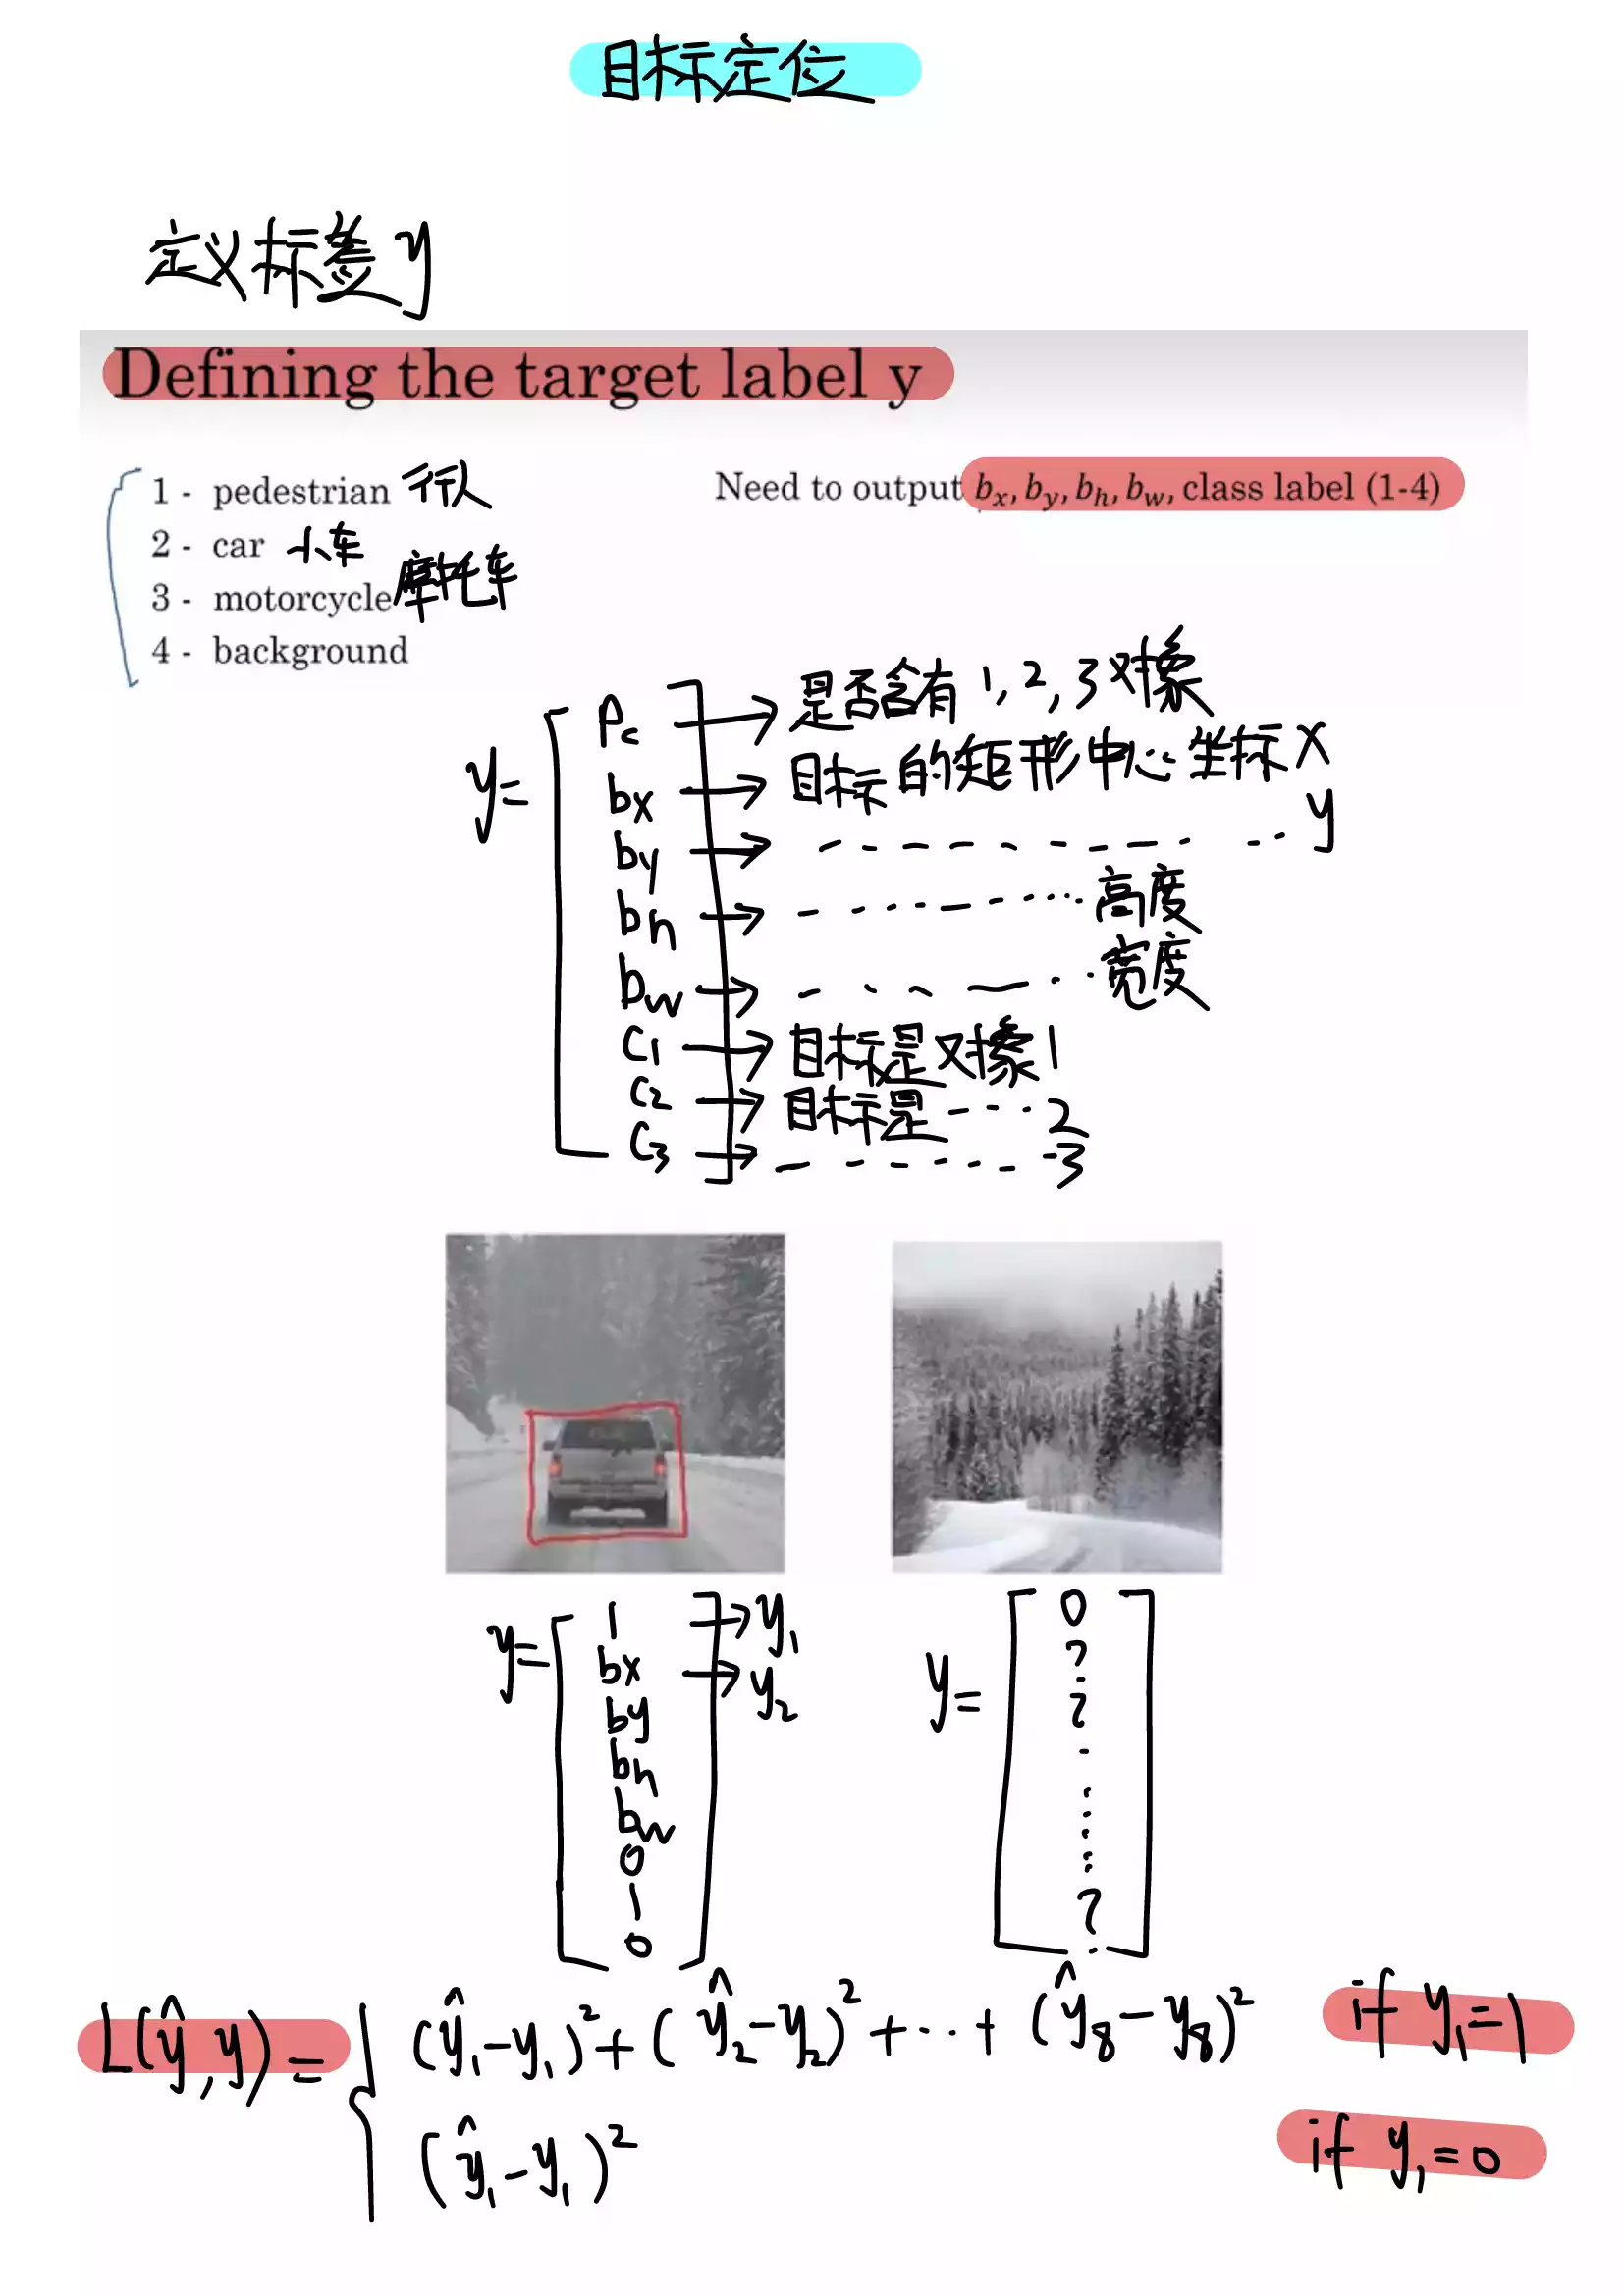 目标定位
定义标签 y
Defining the target label y
1 - pedestrian 行人
2 - car 小车
3 - motorcycle 摩托车
4 - background
Need to output bx, by, bh, bw, class label (1-4)
y=
Pc → 是否含有 1, 2, 3 对象
bx → 目标的矩形中心坐标 x
by → - - - - - - - - - y
bh → - - - - - - - 高度
bw → - - - - - - 宽度
C1 → 目标是对象 1
C2 → 目标是 - - - - 2
C3 → - - - - - - - 3
y=
1 → y1
bx → y2
by
bh
bw
0
1
0
y=
0
?
?
.
.
.
.
.
?
L(ŷ,y)=
(ŷ1-y1)²+(ŷ2-y2)²+...+(ŷ8-y8)² if y1=1
(ŷ1-y1)² if y1=0